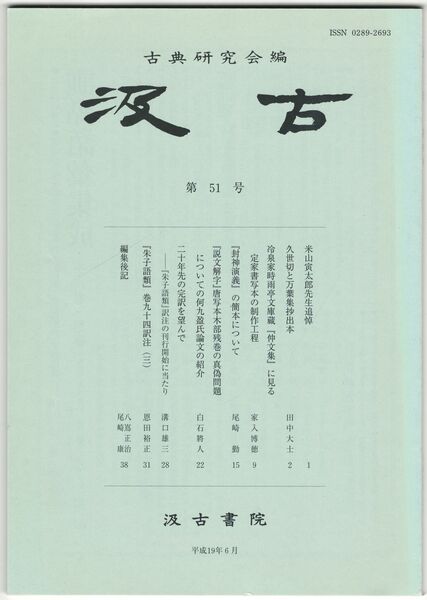 ISSN 0289-2693
古典研究会編
汲古
第 51 号
米山寅太郎先生追悼 1
久世切と万葉集抄出本 田中大士 2
冷泉家時雨亭文庫蔵『仲文集』に見る
定家書写本の制作工程 家入博徳 9
『封神演義』の簡本について 尾崎勤 15
『説文解字』唐写本木部残巻の真偽問題
についての何九盈氏論文の紹介 白石將人 22
二十年先の完訳を望んで
――『朱子語類』訳注の刊行開始に当たり 溝口雄三 28
『朱子語類』巻九十四訳注（三） 恩田裕正 31
編集後記 八嶌正治
尾崎康 38
汲古書院
平成19年6月